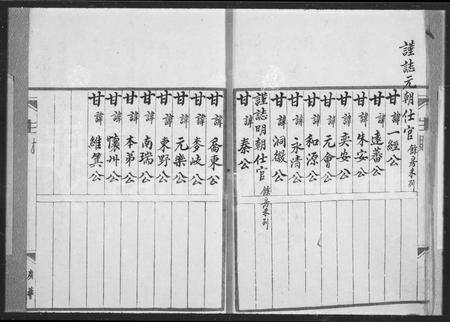 謹誌元朝仕官 餘房未列
甘諱一經公
甘諱遠蕃公
甘諱朱安公
甘諱奕安公
甘諱元會公
甘諱和源公
甘諱永清公
甘諱洞徽公
謹誌明朝仕官 餘房未列
甘諱泰公
甘諱喬東公
甘諱參峽公
甘諱元樂公
甘諱東野公
甘諱南瑞公
甘諱本弟公
甘諱懷州公
甘諱維箕公